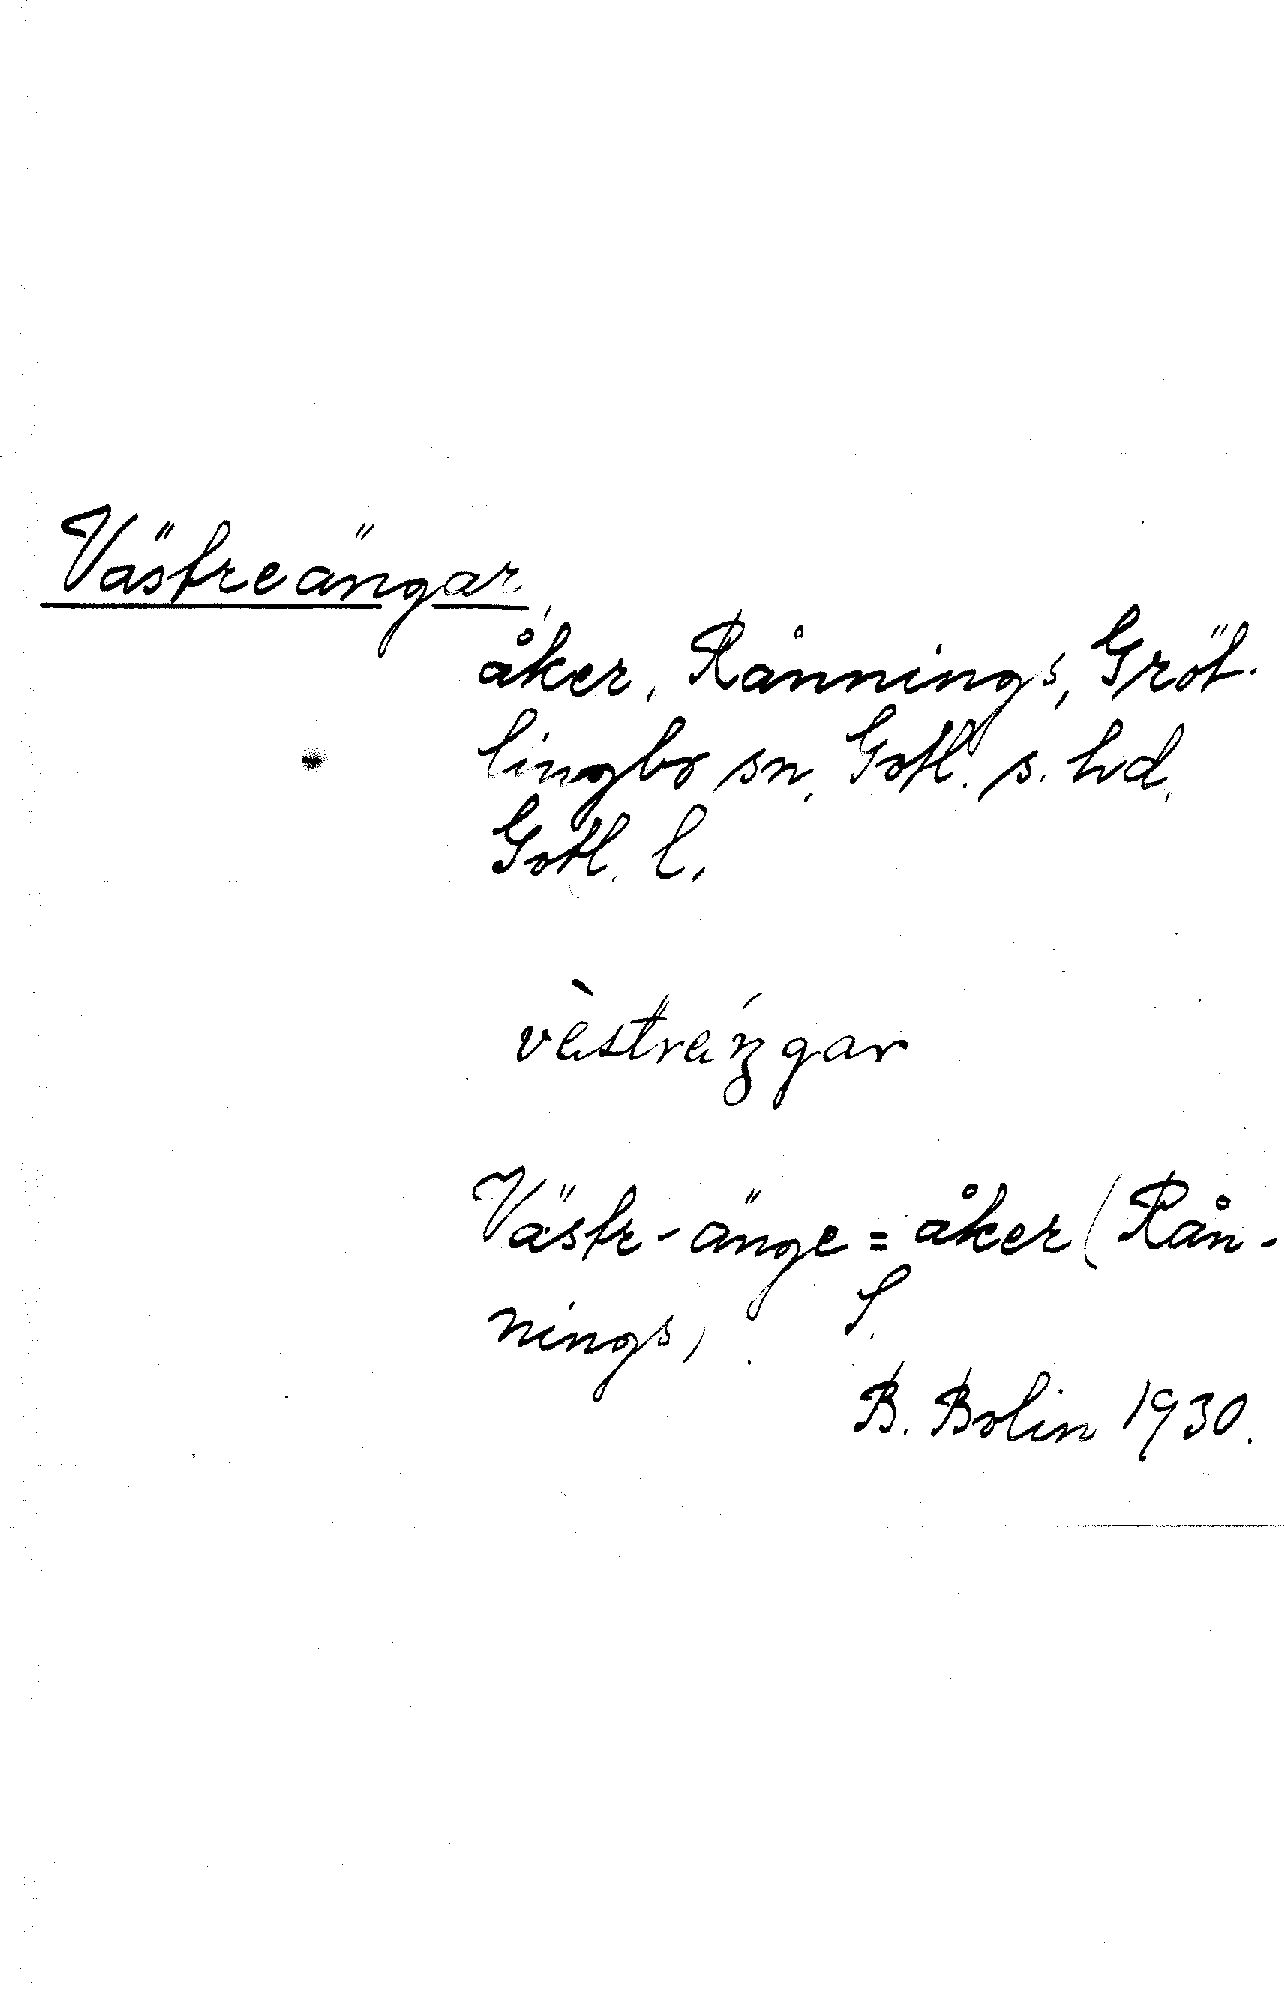 Västreängar,
åker, Rånnings, Gröt-
lingbo sn, Gotl. s. hd,
Gotl. l.
Västr-änge = åker (Rån-
nings) S.
B. Bolin 1930.